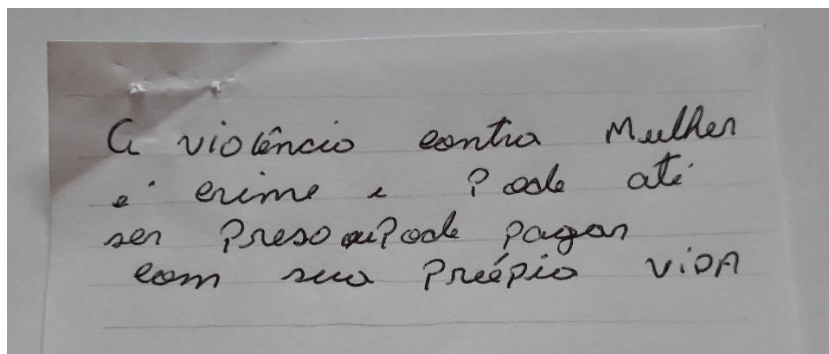 A violência contra Mulher
é crime e Pode até
ser Preso ou Pode pagar
com sua Prépia VIDA